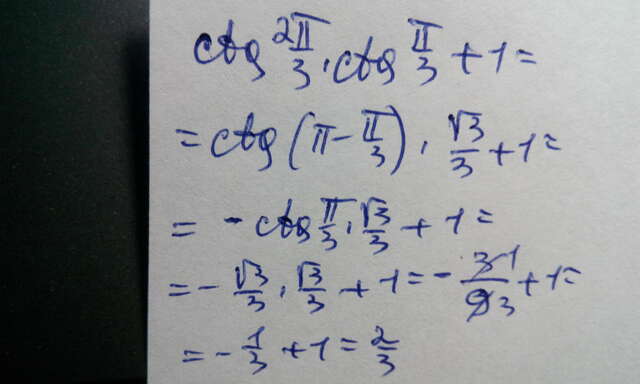 ctg 2π/3 · ctg π/3 + 1 =
= ctg (π - π/3) · √3/3 + 1 =
= - ctg π/3 · √3/3 + 1 =
= - √3/3 · √3/3 + 1 = - 3 1/9 3 + 1 =
= - 1/3 + 1 = 2/3